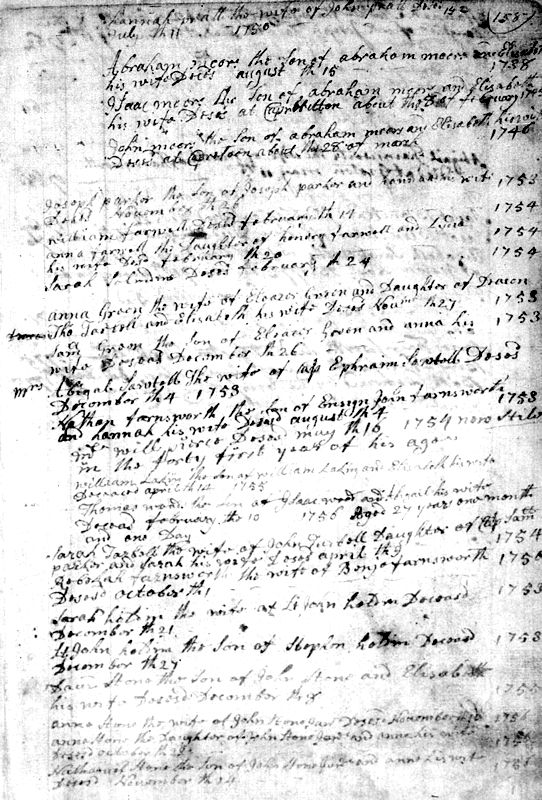 hannah pratt the wife of John pratt Dese:
July th 11 1750
158
Abraham moors the son of abraham moors and Elisabeth
his wife Deses august th 15 1738
Isaac moors the son of abraham moors and Elisabeth
his wife Deses at about the 8 of february 1745
John moors the son of abraham moors and Elisabeth his wife
Deses at about the 28 of march 1746
Joseph parker the son of Joseph parker and his wife
Deses November th 28 1753
william farwell Desed february th 14 1754
anna farwell the Daughter of henery farwell and Lydia
his wife Desd february th 20 1754
Sarah Deses february th 24 1754
anna Green the wife of Eleazer Green and Daughter of Deacon
Tho Tarbell and Elizabeth his wife Deses Novm th 27 1753
Saml Green the son of Eleazer Green and anna his
wife Desesed December th 26 1753
Mrs Abigal Sawtell The wife of Cap Ephram Sawtell Desesd
December th 4 1753
Nathan farnsworth the son of Ensign John farnsworth
and hannah his wife Desesd august th 4 1753
will pierce Desesd may th 16 1754 new Stile
in the forty first year of his age
william Lakin the son of william Lakin and Elizabeth his wife
Deceaced april th 14 1755
Thomas woods the son of Isaac woods and Abigail his wife
Desesed february the 10 1756 Aged 27 years one month
and one Day
Sarah Tarbell the wife of John Tarbell Daughter of Cap Saml
parker and Sarah his wife Desesd april th 9 1754
Rebekah farnsworth the wife of Benja farnsworth
Desesd october th 1 1756
Sarah holdin the wife of Lt John holdin Deceased
December th 21 1753
Lt John holdin the Son of Stephen holdin Decesed
December th 27 1753
the Son of John Stone and Elisabeth
his wife Desesed December th 8
anna Stone the wife of John Stone Junr Desesd November th 10
anna Stone the Daughter of John Stone Junr and anna his wife
Desesd october th
Nathaniel Stone the Son of John Stone Junr and anna his wife
Desesd November th 24